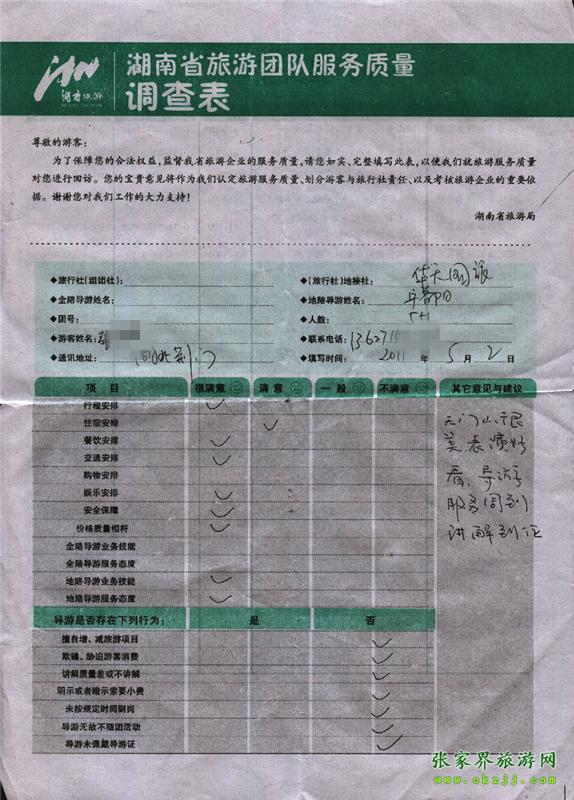 湖南旅游
湖南省旅游团队服务质量
调查表
尊敬的游客：
为了保障您的合法权益，监督我省旅游企业的服务质量，请您如实、完整填写此表，以便我们就旅游服务质量
对您进行回访。您的宝贵意见将作为我们认定旅游服务质量、划分游客与旅行社责任、以及考核旅游企业的重要依
据。谢谢您对我们工作的大力支持！
湖南省旅游局
◆旅行社（组团社）：
◆（旅行社）地接社： 华天国旅
◆全陪导游姓名：
◆地陪导游姓名：
◆团号：
◆人数： 5+1
◆游客姓名：
◆联系电话： 13627
◆通讯地址： 湖北荆门
◆填写时间： 2011 年 5 月 2 日
项目 很满意 满意 一般 不满意 其它意见与建议
行程安排
住宿安排
餐饮安排
交通安排
购物安排
娱乐安排
安全保障
价格质量相符
全陪导游业务技能
全陪导游服务态度
地陪导游业务技能
地陪导游服务态度
天门山很
美，表演好
看，导游
服务周到
讲解到位
导游是否存在下列行为： 是 否
擅自增、减旅游项目
欺骗、胁迫游客消费
讲解质量差或不讲解
明示或者暗示索要小费
未按规定时间到岗
导游无故不随团活动
导游未佩戴导游证
张家界旅游网
www.okzjj.com